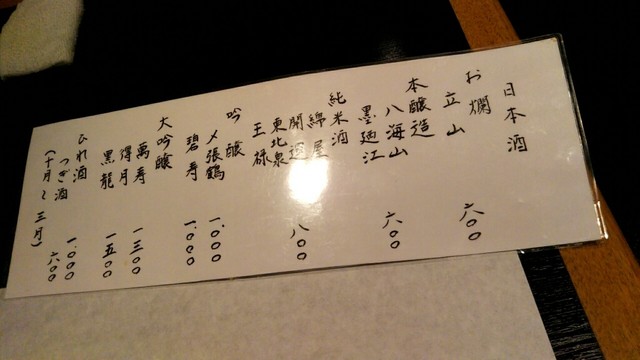 日本酒
お燗
立山 六〇〇
本醸造
八海山 六〇〇
墨廼江
純米酒
綿屋
開運 八〇〇
東北泉
王祿
吟醸
〆張鶴 一、〇〇〇
碧寿 一、〇〇〇
大吟醸
萬寿 一三〇〇
得月
黒龍 一五〇〇
ひれ酒 一、〇〇〇
つぎ酒 六〇〇
（十月〜三月）